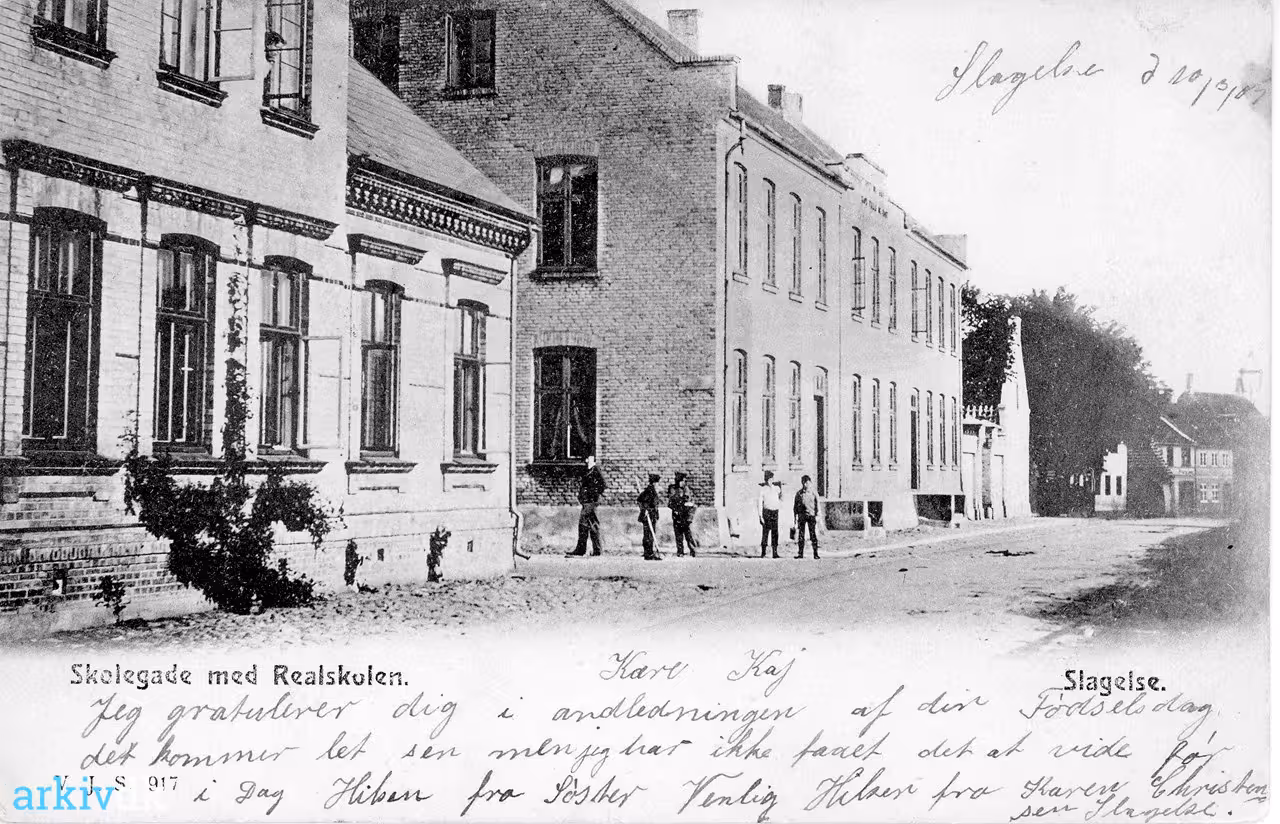 Slagelse d 10/3/07
Skolegade med Realskolen.
Kære Kaj
Slagelse.
Jeg gratulerer dig i andledningen af din Fødselsdag
det kommer let sen men jeg har ikke faaet det at vide før
V. J. S. 917
i Dag Hilsen fra Søster Venlig Hilsen fra Karen Christen=
sen Slagelse.
arkiv.dk